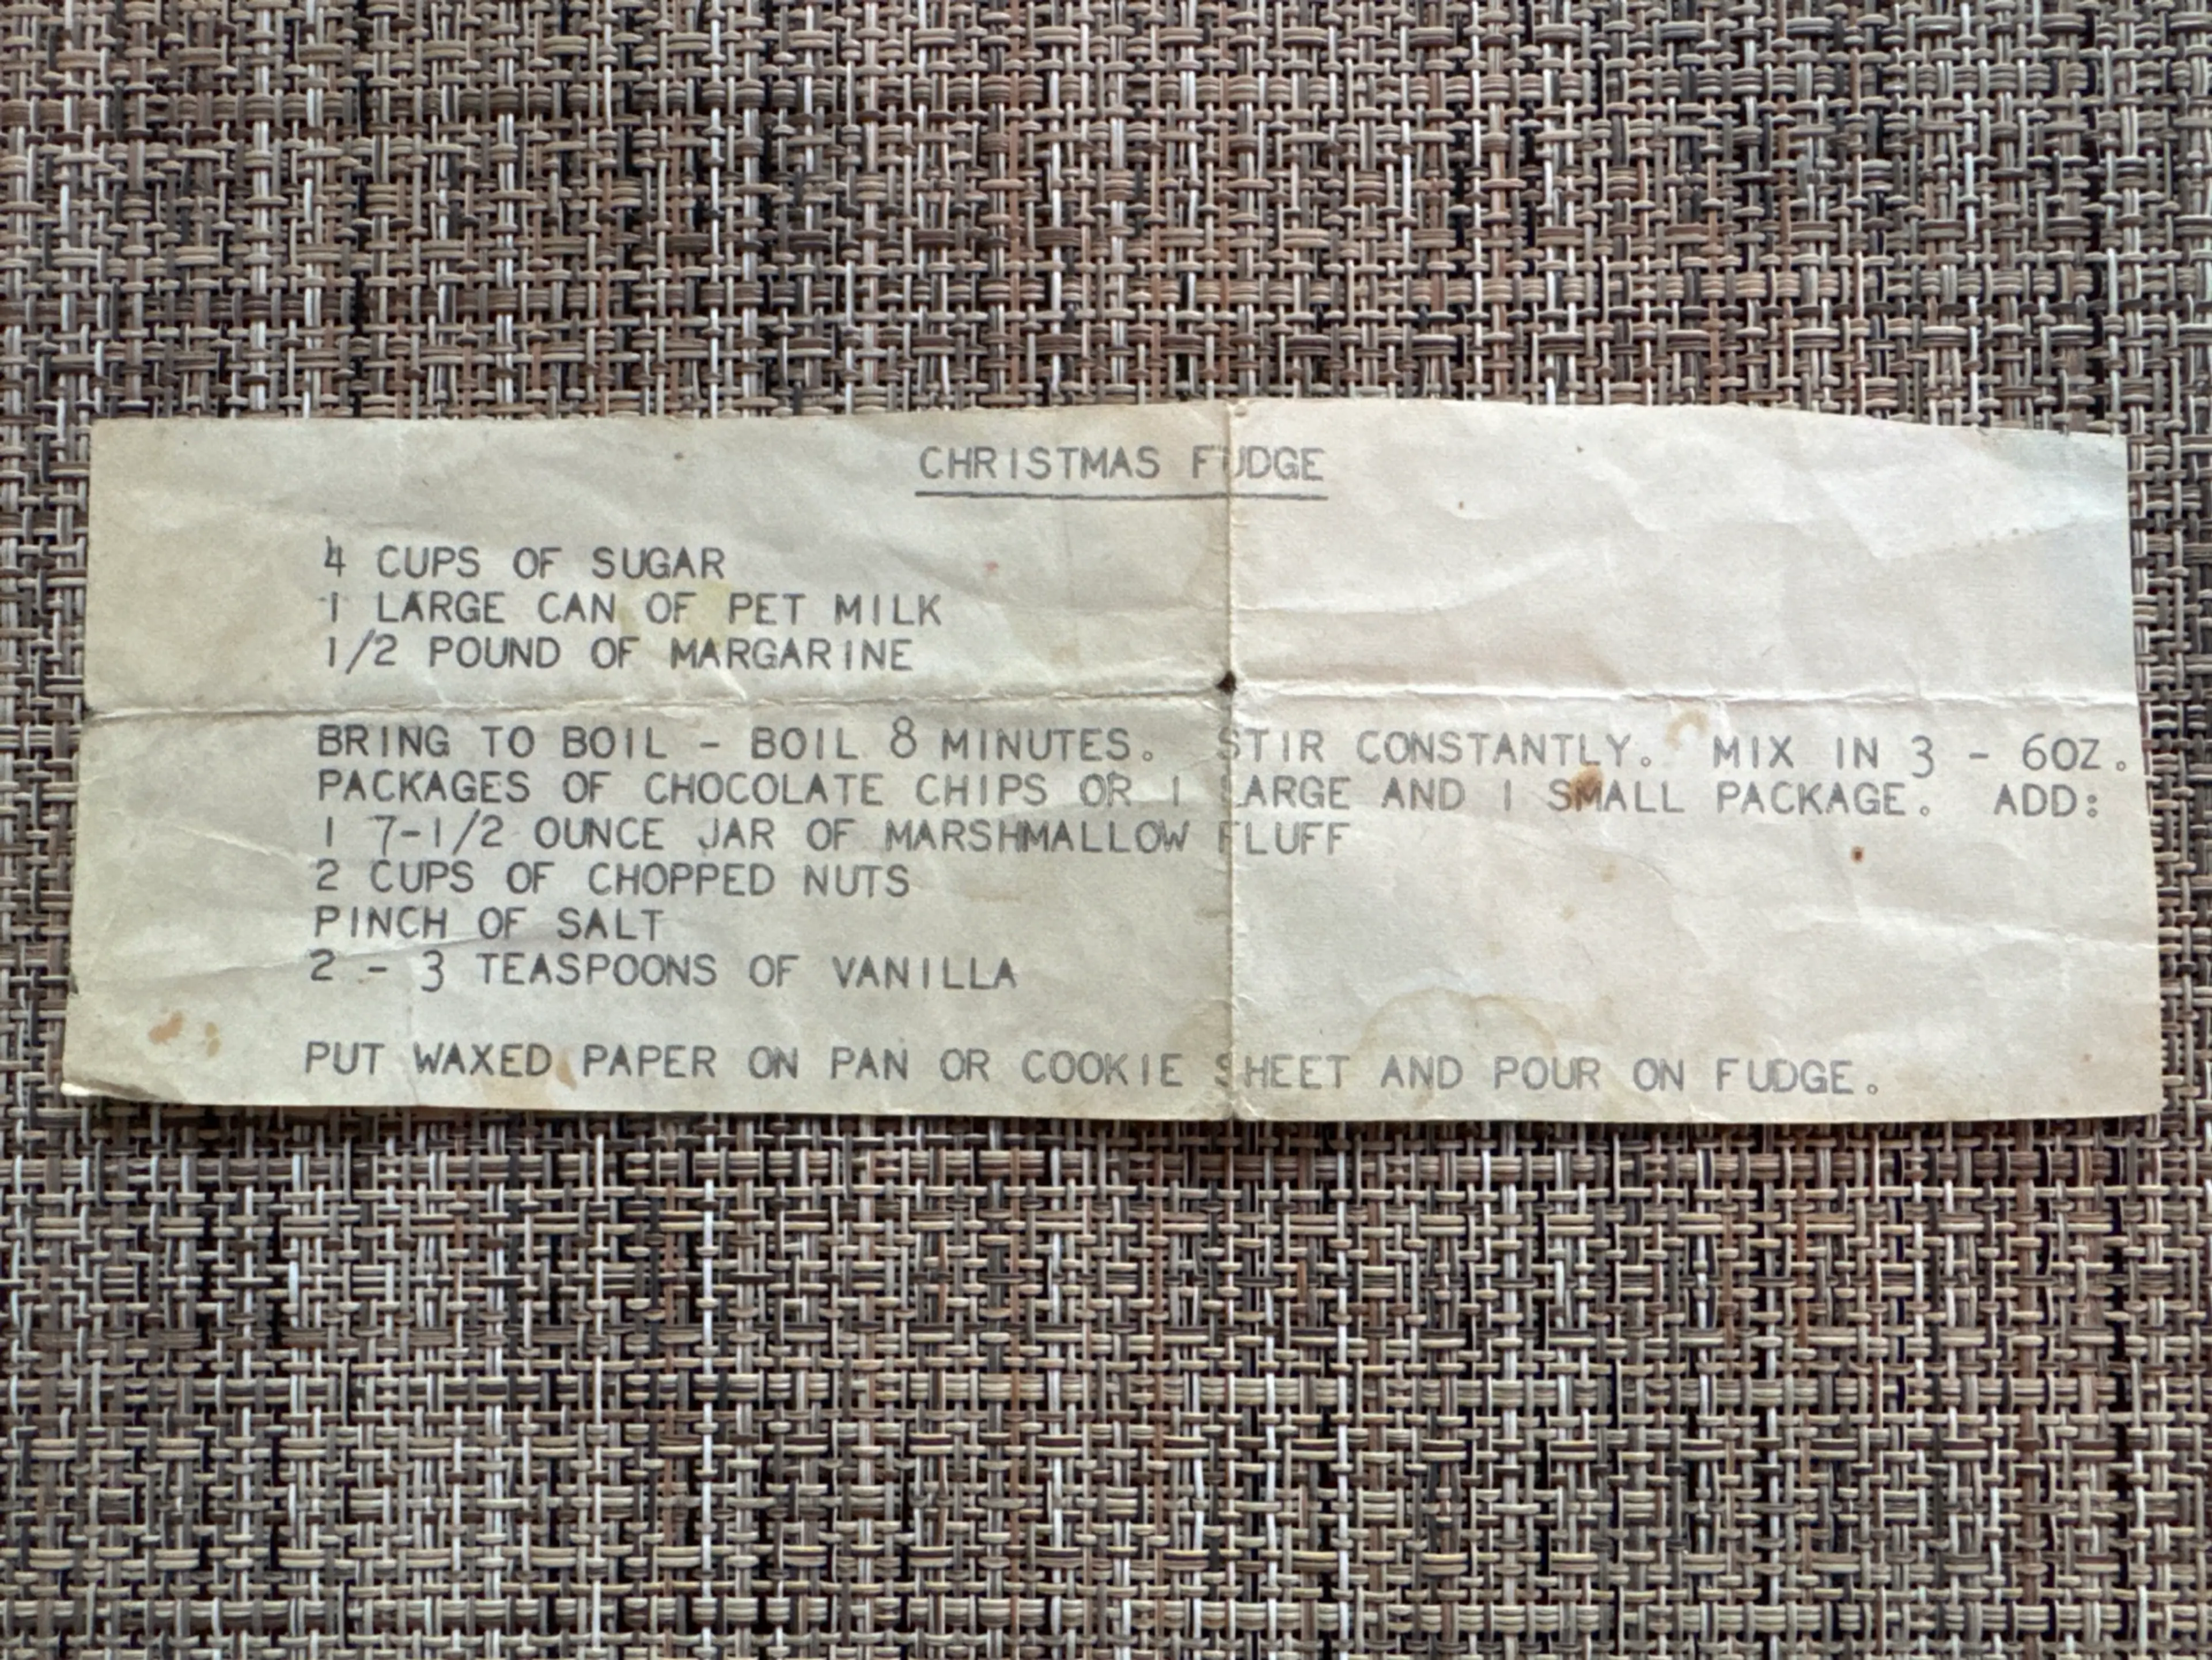 CHRISTMAS FUDGE
4 CUPS OF SUGAR
1 LARGE CAN OF PET MILK
1/2 POUND OF MARGARINE
BRING TO BOIL - BOIL 8 MINUTES. STIR CONSTANTLY. MIX IN 3 - 6OZ.
PACKAGES OF CHOCOLATE CHIPS OR 1 LARGE AND 1 SMALL PACKAGE. ADD:
1 7-1/2 OUNCE JAR OF MARSHMALLOW FLUFF
2 CUPS OF CHOPPED NUTS
PINCH OF SALT
2 - 3 TEASPOONS OF VANILLA
PUT WAXED PAPER ON PAN OR COOKIE SHEET AND POUR ON FUDGE.